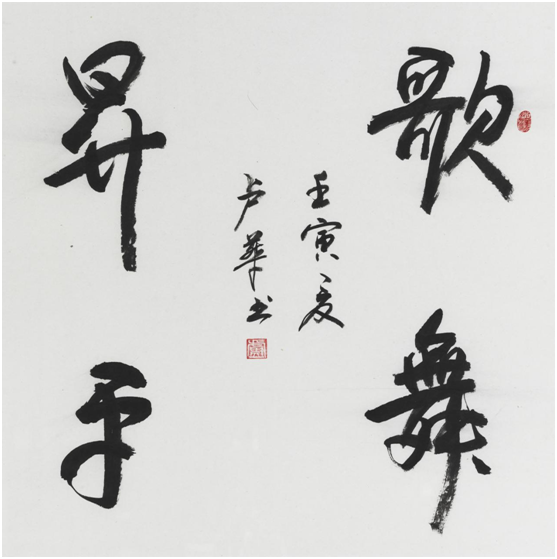 歌舞
昇平
壬寅夏
卢華书